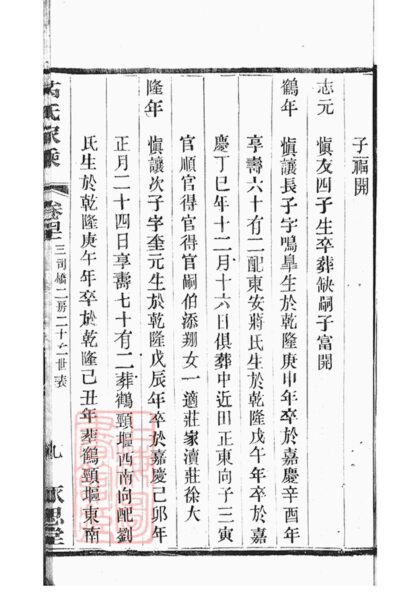 子福開
志元　慎友四子生卒葬缺嗣子富開
鶴年　慎讓長子字鳴臯生於乾隆庚申年卒於嘉慶辛酉年
享壽六十有二配東安蔣氏生於乾隆戊午年卒於嘉
慶丁巳年十二月十六日俱葬中近田正東向子三寅
官順官得官得官嗣伯添翔女一適莊家瀆莊徐大
隆年　慎讓次子字奎元生於乾隆戊辰年卒於嘉慶己卯年
正月二十四日享壽七十有二葬鶴頸塸西南向配劉
氏生於乾隆庚午年卒於乾隆己丑年葬鶴頸塸東南
氏家乘　卷四　三司橋二房二十二世表　九　堂